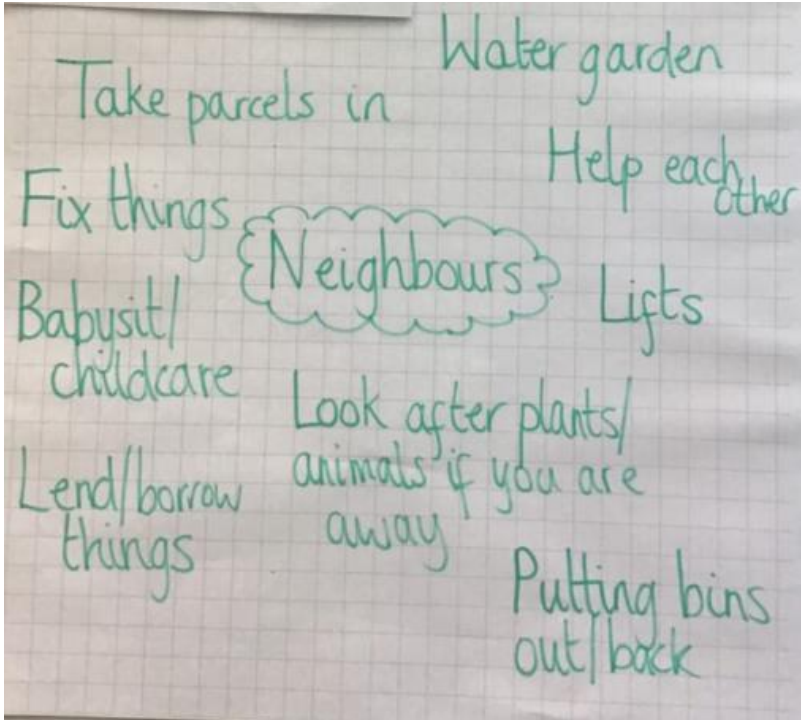 Water garden
Take parcels in
Help each
other
Fix things
Neighbours
Lifts
Babysit/
childcare
Look after plants/
animals if you are
away
Lend/borrow
things
Putting bins
out/back